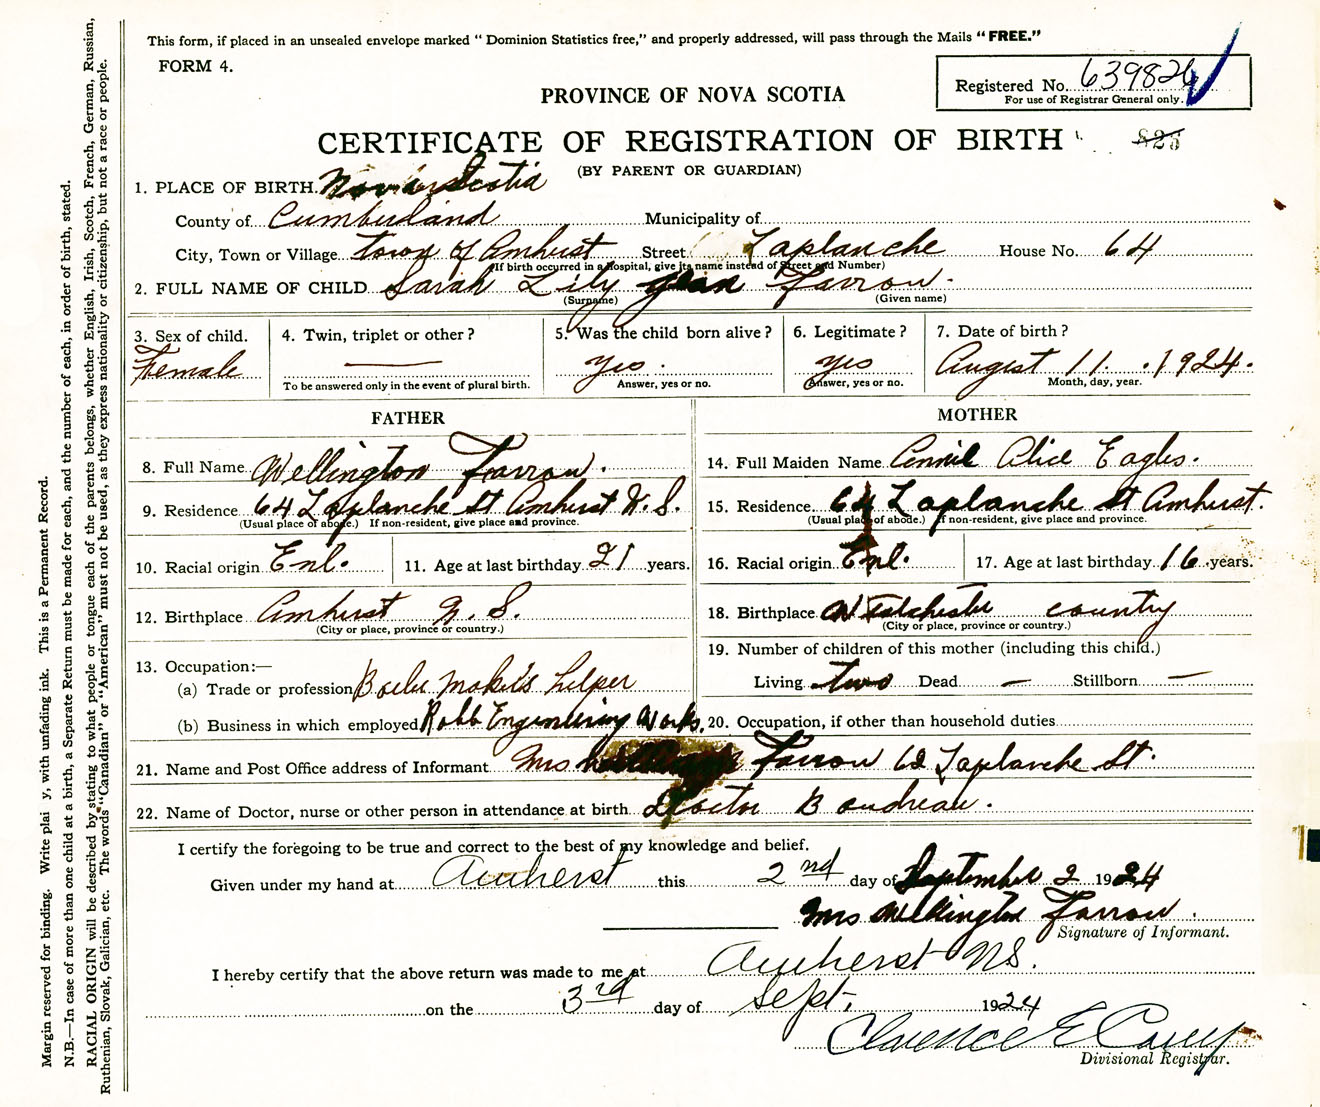 This form, if placed in an unsealed envelope marked “ Dominion Statistics free,” and properly addressed, will pass through the Mails “FREE.”
FORM 4.
Registered No. 639826
For use of Registrar General only.
PROVINCE OF NOVA SCOTIA
CERTIFICATE OF REGISTRATION OF BIRTH
(BY PARENT OR GUARDIAN)
1. PLACE OF BIRTH. Nova Scotia
County of Cumberland Municipality of
City, Town or Village Town of Amhust Street Laplanche House No. 64
(If birth occurred in a hospital, give its name instead of Street and Number)
2. FULL NAME OF CHILD Sarah Lily Jean Farrow.
(Surname) (Given name)
3. Sex of child. 4. Twin, triplet or other ? 5. Was the child born alive ? 6. Legitimate ? 7. Date of birth ?
Female — yes. yes August 11. 1924.
To be answered only in the event of plural birth. Answer, yes or no. Answer, yes or no. Month, day, year.
FATHER MOTHER
8. Full Name Wellington Farrow. 14. Full Maiden Name Annie Alice Eagles.
9. Residence 64 Laplanche St Amhurst N.S. 15. Residence 64 Laplanche St Amhurst.
(Usual place of abode.) If non-resident, give place and province. (Usual place of abode.) If non-resident, give place and province.
10. Racial origin Enl. 11. Age at last birthday 21 years. 16. Racial origin Enl. 17. Age at last birthday 16 years.
12. Birthplace Amhurst N.S. 18. Birthplace Westchester country
(City or place, province or country.) (City or place, province or country.)
13. Occupation:— 19. Number of children of this mother (including this child.)
(a) Trade or profession Boiler Maker's helper Living two Dead — Stillborn —
(b) Business in which employed Robb Engineering Works. 20. Occupation, if other than household duties
21. Name and Post Office address of Informant Mrs Farrow 62 Laplanche St.
22. Name of Doctor, nurse or other person in attendance at birth Doctor Boudreau.
I certify the foregoing to be true and correct to the best of my knowledge and belief.
Given under my hand at Amherst this 2nd day of September 2 1924
Mrs Wellington Farrow.
Signature of Informant.
I hereby certify that the above return was made to me at Amherst NS.
on the 3rd day of Sept. 1924
Clarence E Casey
Divisional Registrar.
Margin reserved for binding. Write plai y, with unfading ink. This is a Permanent Record.
N.B.—In case of more than one child at a birth, a Separate Return must be made for each, and the number of each, in order of birth, stated.
RACIAL ORIGIN will be described by stating to what people or tongue each of the parents belongs, whether English, Irish, Scotch, French, German, Russian,
Ruthenian, Slovak, Galician, etc. The words “Canadian” or “American” must not be used, as they express nationality or citizenship, but not a race or people.